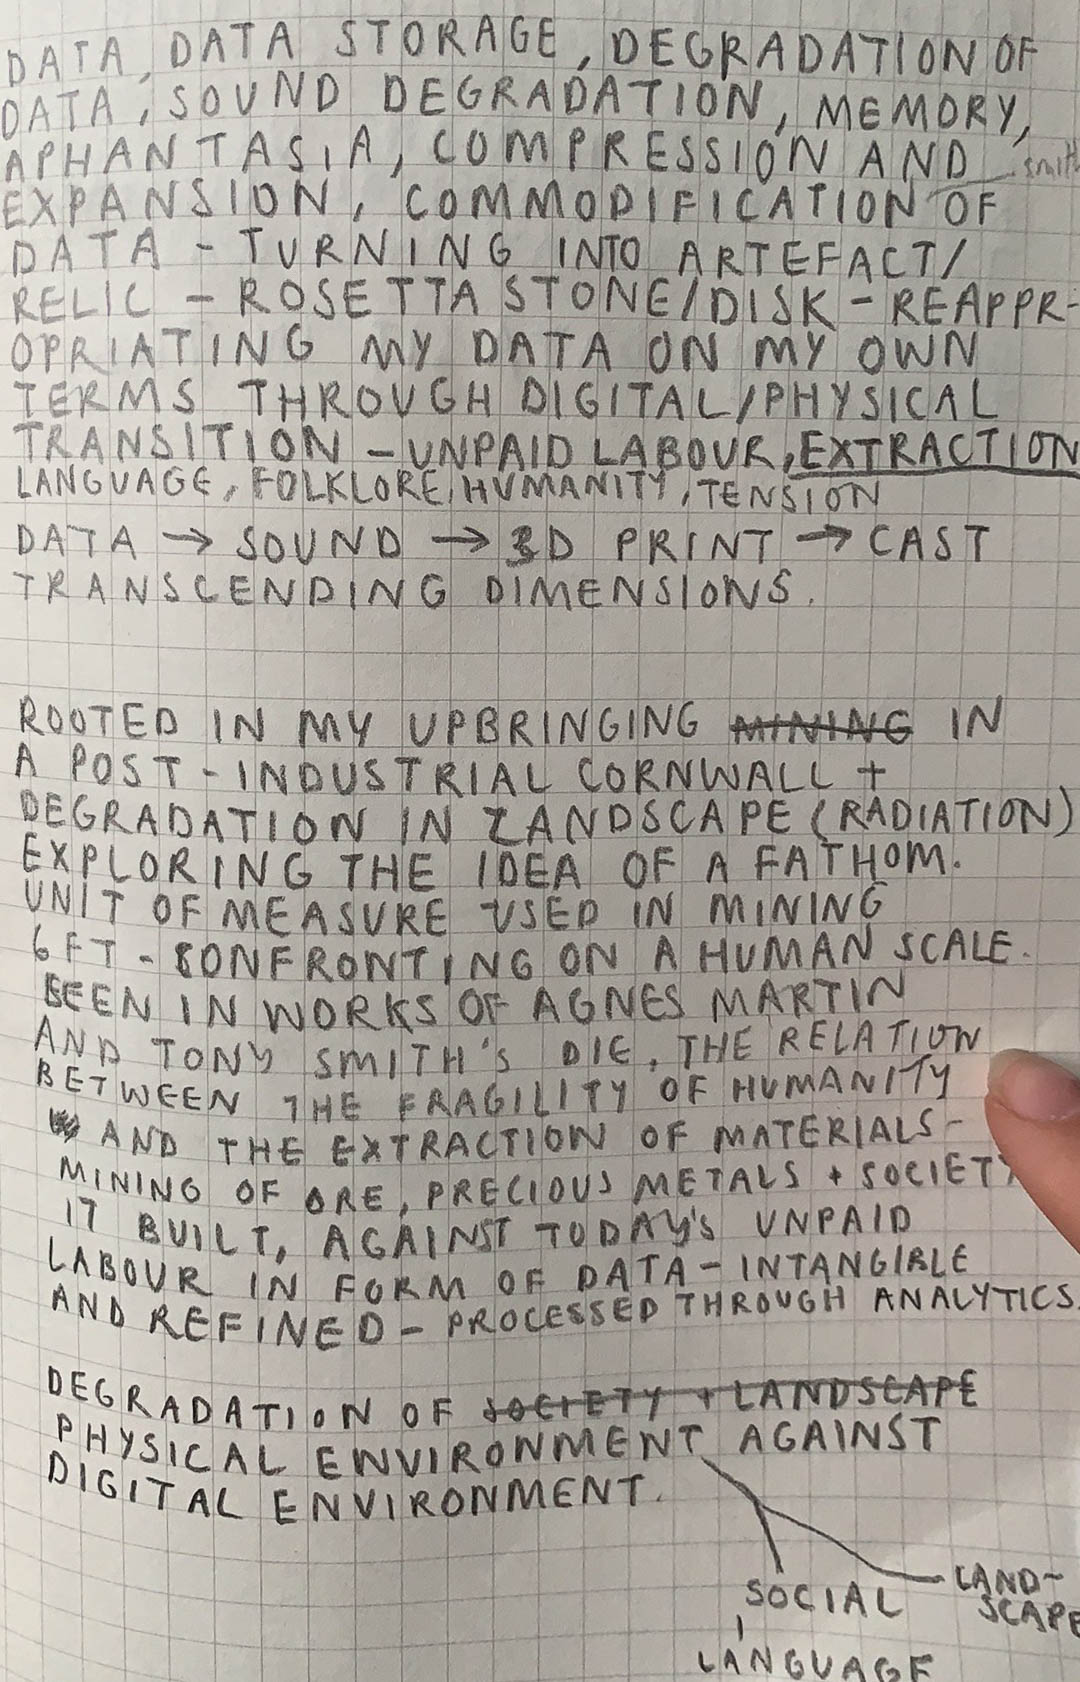 DATA, DATA STORAGE, DEGRADATION OF
DATA, SOUND DEGRADATION, MEMORY,
APHANTASIA, COMPRESSION AND smith
EXPANSION, COMMODIFICATION OF
DATA - TURNING INTO ARTEFACT/
RELIC - ROSETTA STONE/DISK - REAPPR-
OPRIATING MY DATA ON MY OWN
TERMS THROUGH DIGITAL/PHYSICAL
TRANSITION - UNPAID LABOUR, EXTRACTION
LANGUAGE, FOLKLORE, HUMANITY, TENSION
DATA → SOUND → 3D PRINT → CAST
TRANSCENDING DIMENSIONS.
ROOTED IN MY UPBRINGING MINING IN
A POST-INDUSTRIAL CORNWALL +
DEGRADATION IN LANDSCAPE (RADIATION)
EXPLORING THE IDEA OF A FATHOM.
UNIT OF MEASURE USED IN MINING
6FT - CONFRONTING ON A HUMAN SCALE.
SEEN IN WORKS OF AGNES MARTIN
AND TONY SMITH'S DIE, THE RELATION
BETWEEN THE FRAGILITY OF HUMANITY
AND THE EXTRACTION OF MATERIALS -
MINING OF ORE, PRECIOUS METALS + SOCIETY
IT BUILT, AGAINST TODAY'S UNPAID
LABOUR IN FORM OF DATA - INTANGIBLE
AND REFINED - PROCESSED THROUGH ANALYTICS.
DEGRADATION OF SOCIETY + LANDSCAPE
PHYSICAL ENVIRONMENT AGAINST
DIGITAL ENVIRONMENT.
LAND-
SCAPE
SOCIAL
LANGUAGE